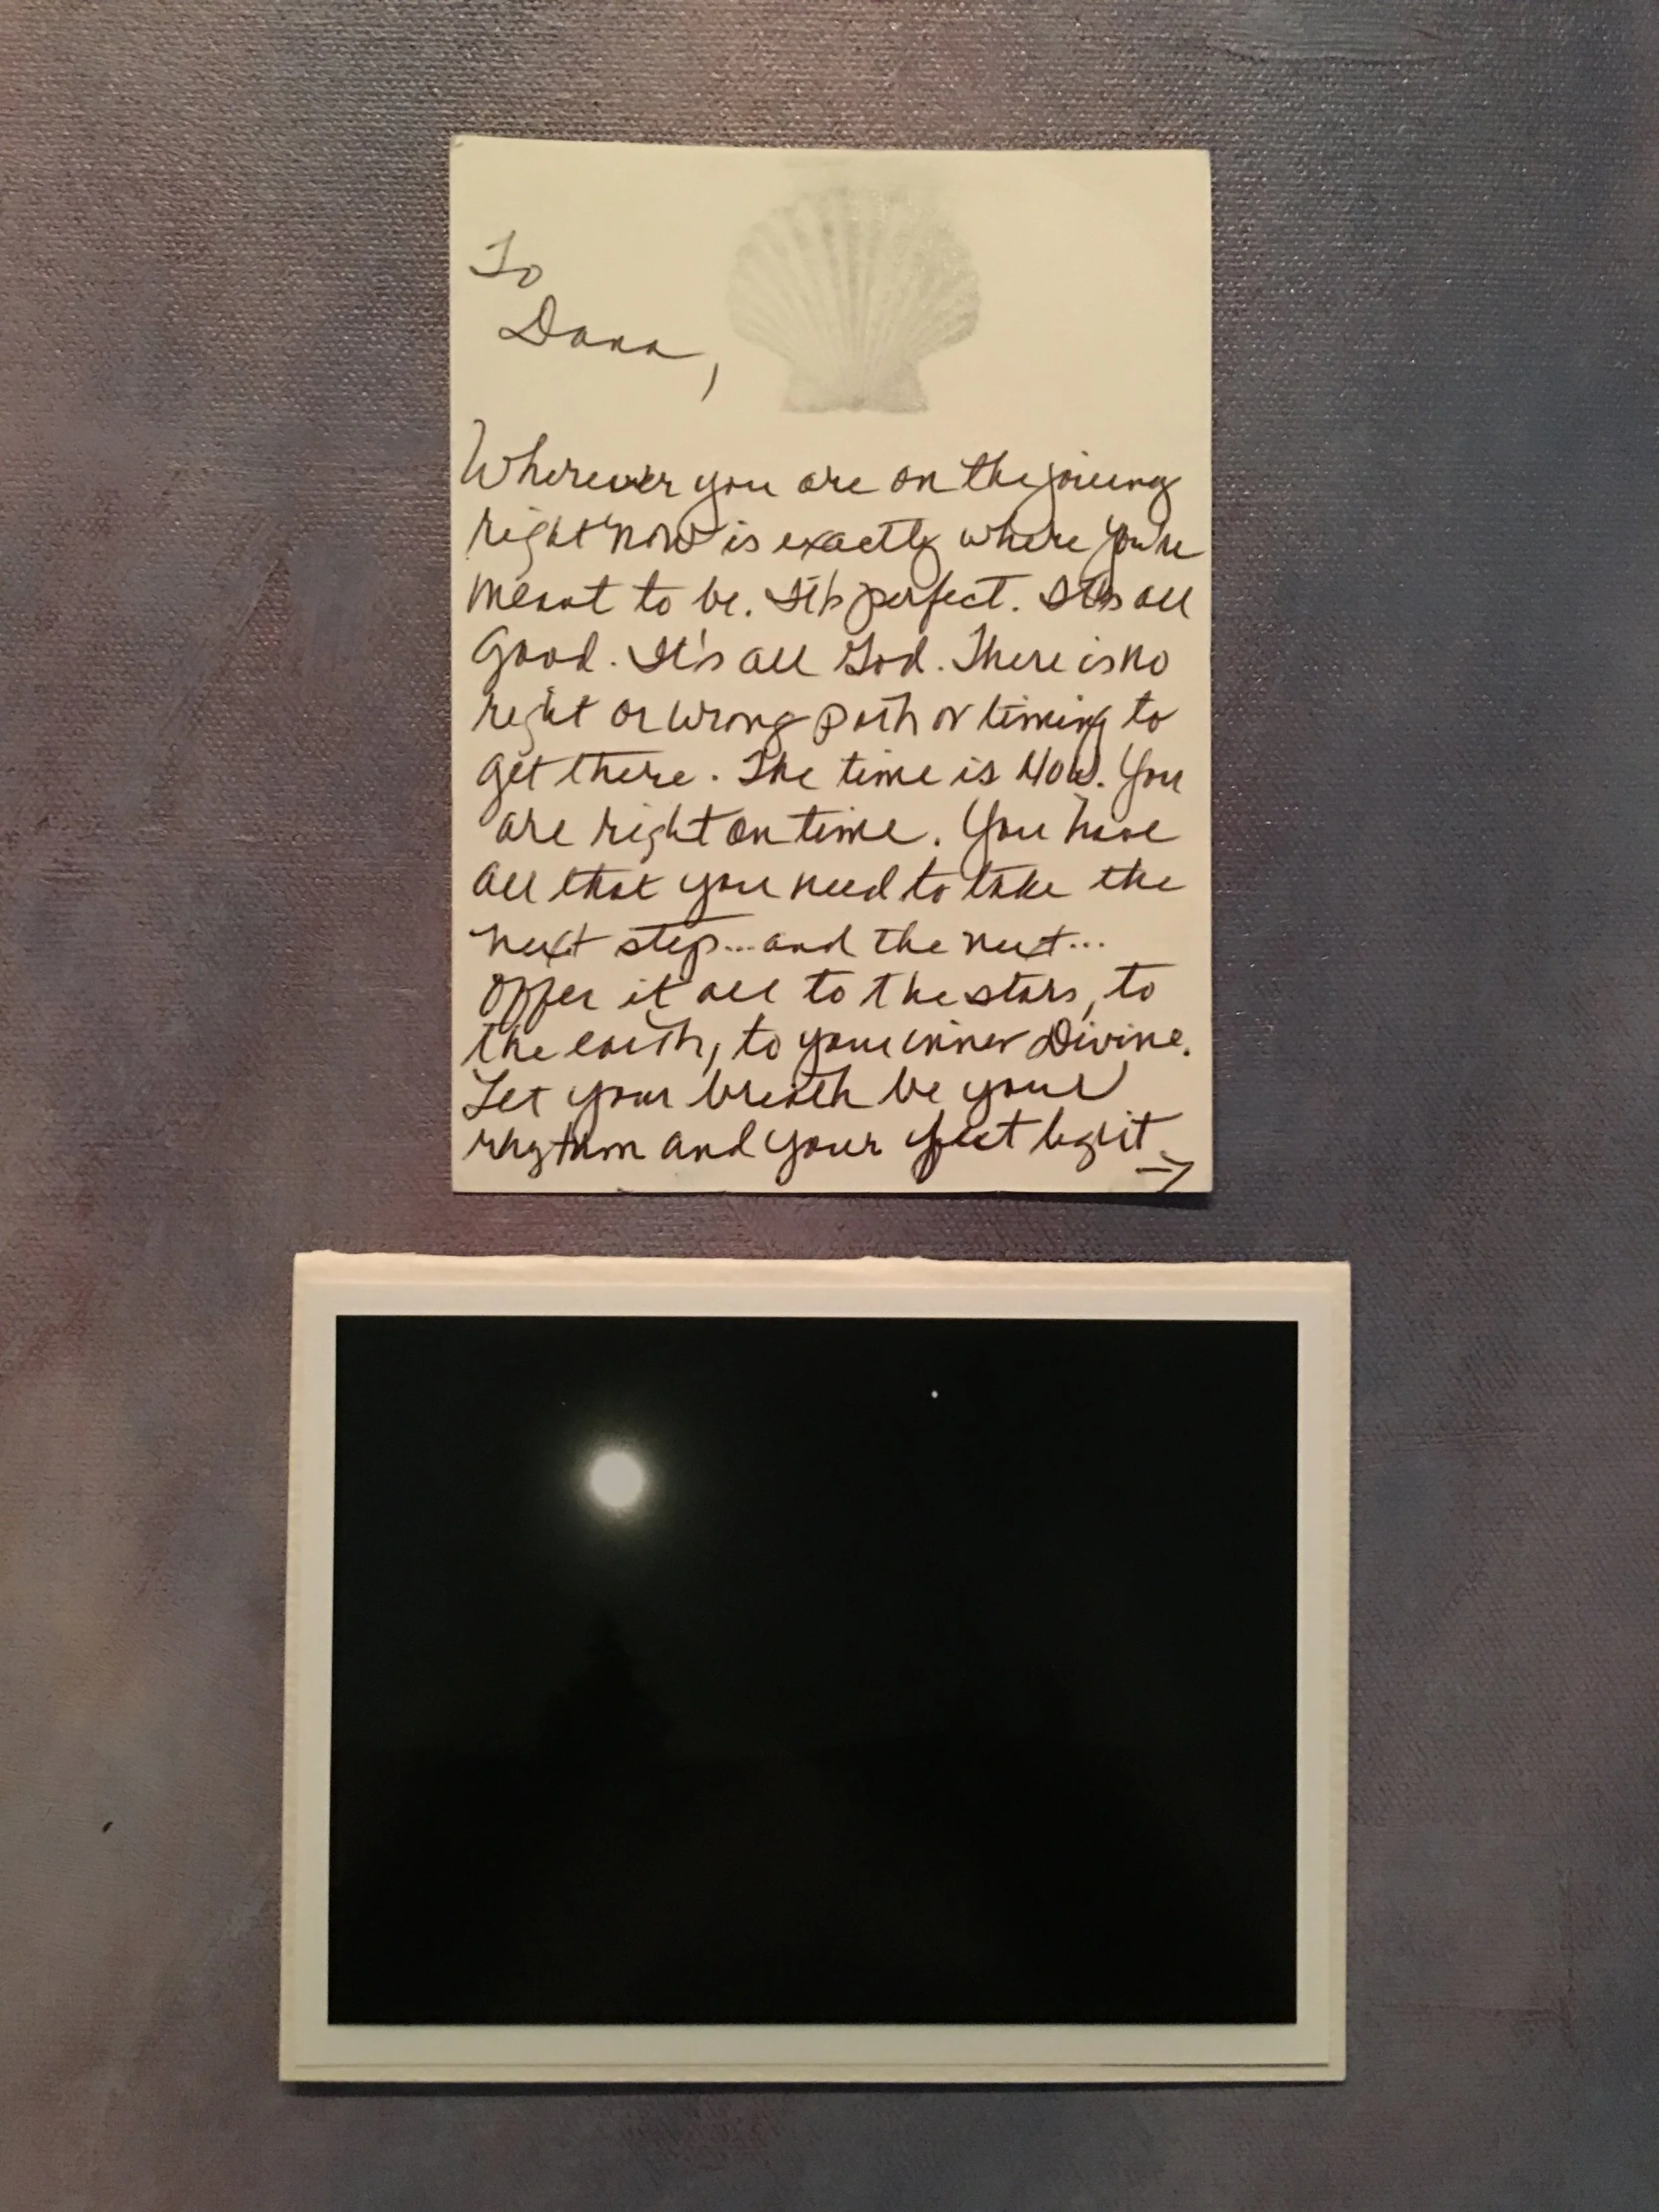 To
Dana,
Wherever you are on the journey
right now is exactly where you're
meant to be. It's perfect. It's all
Good. It's all God. There is no
right or wrong path or timing to
get there. The time is Now. You
are right on time. You have
all that you need to take the
next step...and the next...
Offer it all to the stars, to
the earth, to your inner Divine.
Let your breath be your
rhythm and your feet light
→